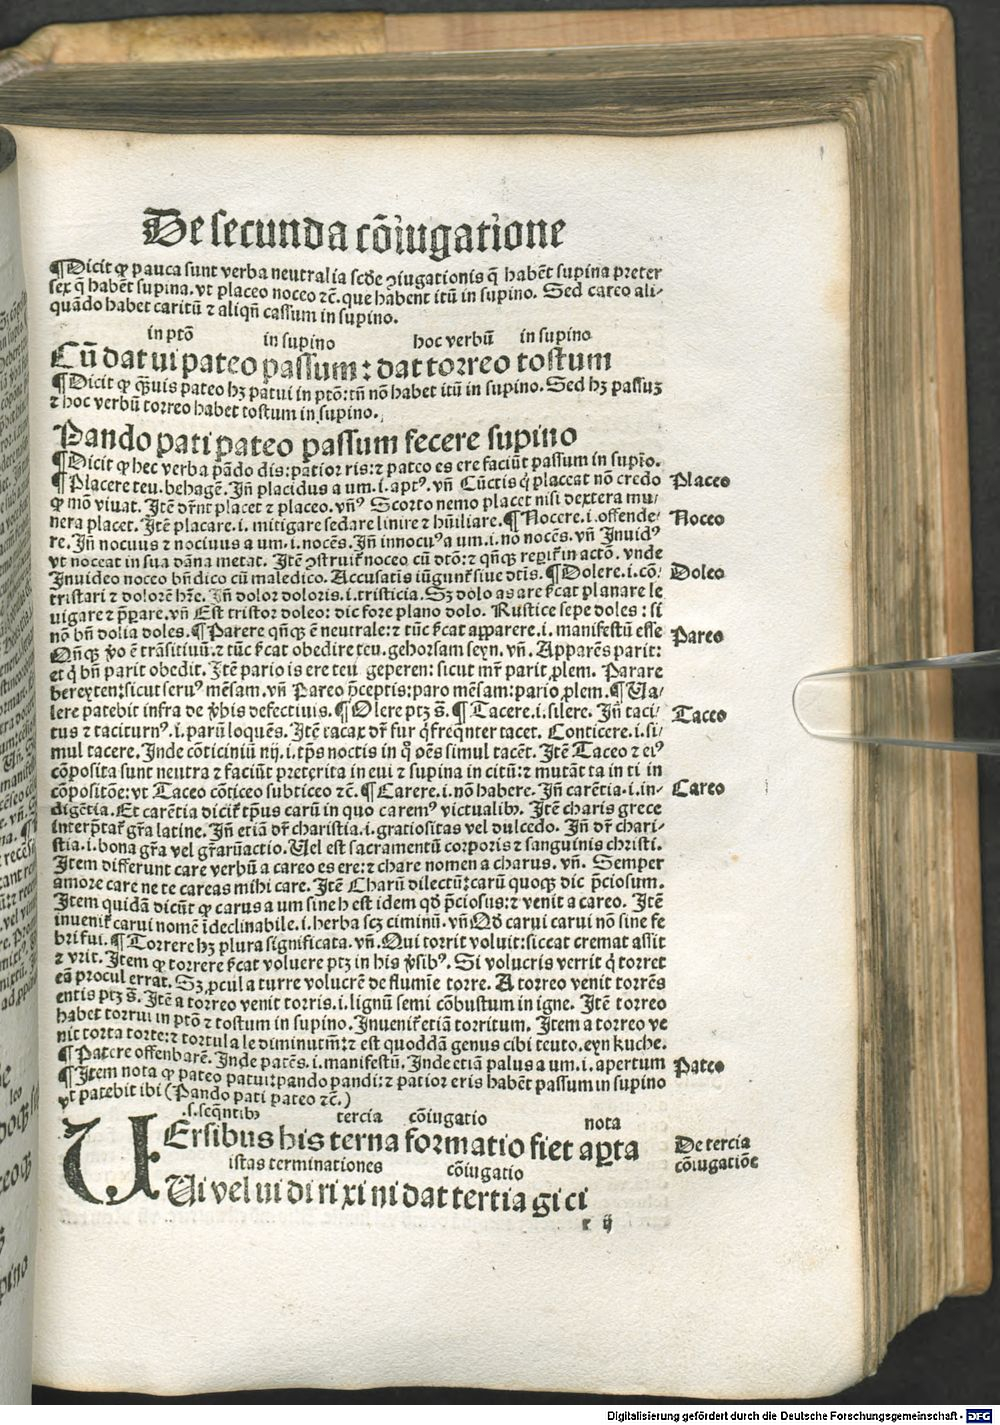 De secunda cōiugatione
¶Dicit ꝙ pauca sunt verba neutralia scd̄e ꝯiugationis q̄ habēt supina preter
sex q̄ habēt supina. vt placeo noceo ⁊c̄. que habent itū in supino. Sed careo ali-
quādo habet caritū ⁊ aliqn̄ cassum in supino.
in ptō in supino hoc verbū in supino
Cū dat ui pateo passum: dat torreo tostum
¶Dicit ꝙ q̄uis pateo hꝫ patui in ptō: tn̄ nō habet itū in supino. Sed hꝫ passuꝫ
⁊ hoc verbū torreo habet tostum in supino.
Pando pati pateo passum fecere supino
¶Dicit ꝙ hec verba pādo dis: patior ris: ⁊ pateo es ere faciūt passum in supīo.
¶Placere teu. behagē. Jn̄ placidus a um. i. aptꝰ. vn̄ Cūctis q̇ placeat nō credo
Placeo
ꝙ mō viuat. Jtē dr̄nt placet ⁊ placeo. vn̄ꝰ Scorto nemo placet nisi dextera mu-
nera placet. Jtē placare. i. mitigare sedare linire ⁊ hūiliare. ¶Nocere. i. offende-
Noceo
re. Jn̄ nocuus ⁊ nociuus a um. i. nocēs. Jn̄ innocuꝰ a um. i. no nocēs. vn̄ Jnuidꝰ
vt noceat in sua dāna metat. Jtē ꝯstruiꝉ noceo cū dtō: ⁊ qn̄qꝫ reꝑiꝉ in actō. vnde
Jnuideo noceo bn̄dico cū maledico. Accusatis iūgunꝉ siue dtīs. ¶Dolere. i. cō-
Doleo
tristari ⁊ dolorē hr̄e. Jn̄ dolor doloris. i. tristicia. Sꝫ dolo as are ẜcat planare le
uigare ⁊ p̄ꝑare. vn̄ Est tristor doleo: dic fore plano dolo. Rustice sepe doles: si
nō bn̄ dolia doles. ¶Parere qn̄qꝫ ē neutrale: ⁊ tūc ẜcat apparere. i. manifestū esse
Pareo
Qn̄qꝫ v̊o ē trāsitiuū: ⁊ tūc ẜcat obedire teu. gehorsam seyn. vn̄. Apparēs parit:
et q̇ bn̄ parit obedit. Jtē pario is ere teu geperen: sicut mr̄ parit ꝓlem. Parare
bereyten: sicut seruꝰ mēsam. vn̄ Pareo p̄ceptis: paro mēsam: pario ꝓlem. ¶Va-
lere patebit infra de v̊bis defectiuis. ¶Olere ptꝫ s̄. ¶Tacere. i. silere. Jn̄ taci-
Taceo
tus ⁊ taciturnꝰ. i. parū loquēs. Jtē tacax dr̄ fur q̇ freqn̄ter tacet. Conticere. i. si-
mul tacere. Jnde cōticiniū nij. i. tp̄s noctis in q̊ oēs simul tacēt. Jtē Taceo ⁊ eiꝰ
cōposita sunt neutra ⁊ faciūt preterita in eui ⁊ supina in citū: ⁊ mutāt ta in ti in
cōpositōe: vt Taceo cōticeo subticeo ⁊c̄. ¶Carere. i. nō habere. Jn̄ carētia. i. in-
Careo
digētia. Et carētia diciꝉ tp̄us carū in quo caremꝰ victualibꝫ. Jtē charis grece
interp̄taꝉ gr̄a latine. Jn̄ etiā dr̄ charistia. i. gratiositas vel dulcedo. Jn̄ dr̄ chari-
stia. i. bona gr̄a vel gr̄arūactio. Vel est sacramentū corporis ⁊ sanguinis christi.
Jtem differunt care verbū a careo es ere: ⁊ chare nomen a charus. vn̄. Semper
amore care ne te careas mihi care. Jtē Charū dilectū: carū quoqꝫ dic p̄ciosum.
Jtem quidā dicūt ꝙ carus a um sine h est idem qd̄ p̄ciosus: ⁊ venit a careo. Jtē
inueniꝉ carui nomē īdeclinabile. i. herba scꝫ ciminū. vn̄ Qd̄ carui carui nō sine fe
bri fui. ¶Torrere hꝫ plura significata. vn̄. Qui torrit voluit: siccat cremat assit
⁊ vrit. Jtem ꝙ torrere ẜcat voluere ptꝫ in his v̊sibꝰ. Si volucris verrit q̇ torret
eā procul errat. Sꝫ ꝓcul a turre volucrē de flumie torre. A torreo venit torrēs
entis ptꝫ s̄. Jtē a torreo venit torris. i. lignū semi cōbustum in igne. Jtē torreo
habet torrui in ptō ⁊ tostum in supino. Jnueniꝉ etiā torritum. Jtem a torreo ve
nit torta torte: ⁊ tortula le diminutiū: ⁊ est quoddā genus cibi teuto. eyn kuche.
¶Patere offenbarē. Jnde patēs. i. manifestū. Jnde etiā palus a um. i. apertum
Pateo
¶Jtem nota ꝙ pateo patui: pando pandi: ⁊ patior eris habēt passum in supino
vt patebit ibi (Pando pati pateo ⁊c̄.)
.s. seq̄ntibꝫ tercia cōiugatio nota
VErsibus his terna formatio fiet aꝑta
De tercia
cōiugatiōe
istas terminationes cōiugatio
Vi vel ui di ri xi ni dat tertia gi ci
r ij
Digitalisierung gefördert durch die Deutsche Forschungsgemeinschaft - DFG